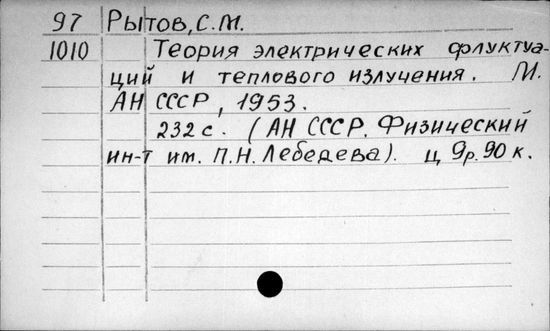 97 Рытов, С.М.
1010 Теория электрических флуктуа-
ций и теплового излучения. М.
АН СССР, 1953.
232 с. (АН СССР. Физический
ин-т им. П.Н. Лебедева). ц 9р.90к.